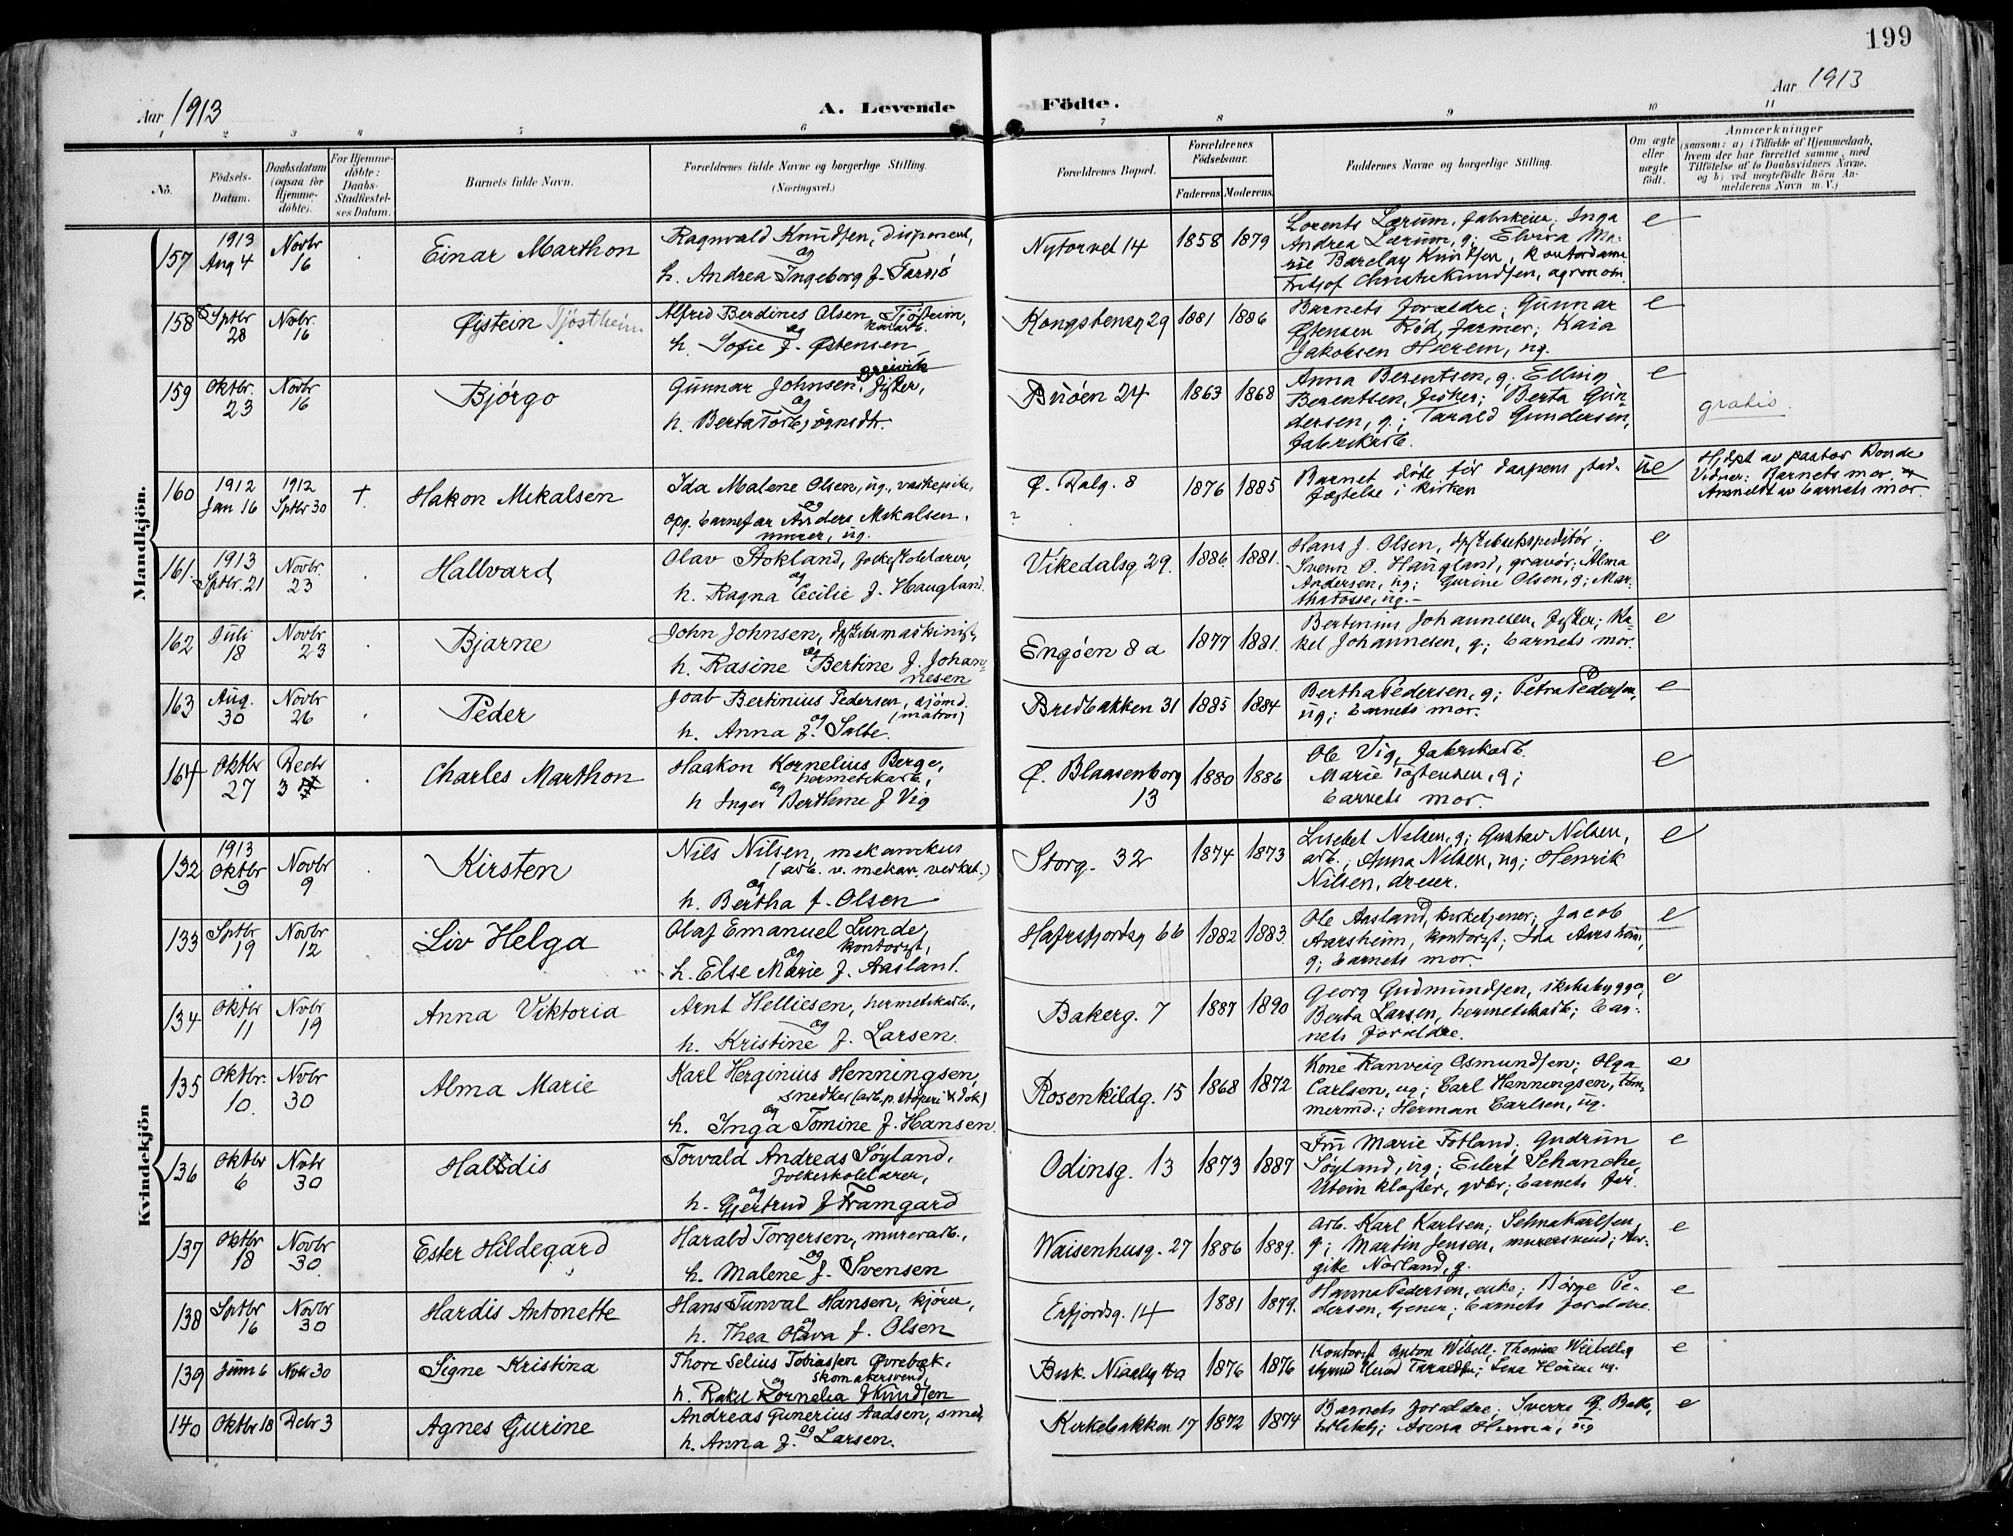 199
Aar 1913
A. Levende
Födte.
Aar 1913
1 2 3 4 5 6 7 8 9 10 11
No.
Födsels-
Datum.
Daabsdatum
(ogsaa for
Hjemme-
döbte).
For Hjemme-
döbte:
Daabs-
Stadfæstel-
ses Datum.
Barnets fulde Navn.
Forældrenes fulde Navne og borgerlige Stilling.
(Næringsvei.)
Forældrenes Bopæl.
Forældrenes
Födselsaar.
Faderens. Moderens.
Faddernes Navne og borgerlige Stilling.
Om ægte
eller
uægte
födt.
Anmærkninger
(saasom: a) i Tilfælde af Hjemmedaab,
hvem der har forrettet samme, med
Tilföielse af to Daabsvidners Navne,
og b) ved uægtefödte Börn An-
melderens Navn m. V.)
Mandkjön.
157
1913
Aug 4
Novbr
16
Einar Marthon
Ragnvald Knudsen, disponent,
og
h. Andrea Ingeborg f. Tarsjö
Nytorvet 14
1858
1879
Lorents Lærum, fabrikeier, Inga
Andrea Lærum, g; Elvira Ma-
rie Barclay Knudsen, kontordame
Fritjof Christie Knudsen, agronom
e
158
Sptbr
28
Novbr.
16
Øistein Tjöstheim
Alfred Berdines Olsen Tjöstheim,
og
h. Sofie f. Østensen
Kongstensg 29
1881
1886
Barnets forældre; Gunnar
Østensen Röd, farmer; Kaia
Jakobsen Hærem, ug.
e
159
Oktbr.
23
Novbr
16
Bjørgo
Breivik
Gunnar Johnsen, fisker,
og
h. Berta Torbjörnsdtr.
Buøen 24
1863
1868
Anna Berentsen, g; Elling
Berentsen, fisker; Berta Gun-
dersen, g; Tarald Gundersen,
fabrikarb.
e
gratis.
160
1912
Jan 16
1912
Sptbr 30
†.
Hakon Mikalsen
Ida Malene Olsen, ug., vaskepike,
og
opg. barnefar Anders Mikalsen,
murer, ug.
Ø. Dalg. 8
?
1876
1885
Barnet døde før daapens stad-
fæstelse i kirken
ue
Hjdpt av pastor Bonde
Vidner: Barnets mor
Anmeldt av barnets mor.
161
1913
Sptbr. 21
Novbr.
23
Hallvard
Olav Stokland, folkeskolelærer,
og
h. Ragna Cecilie f. Haugland.
Vikedalsg 29.
1886.
1881.
Hans J. Olsen, dpskibsekspeditör;
Svenn O. Haugland, gravör; Alma
Andersen, ug; Gurine Olsen, g; Mar-
tha Fosse, ug.-
e
162
Juli
18
Novbr
23
Bjarne
John Johnsen, dpskibsmaskinist,
og
h. Rasine Bertine f. Johan-
nesen
Engøen 8 a
1877
1881.
Bertinius Johannesen, fisker; Ra-
kel Johannesen, g; barnets mor.
e
163
Aug.
30
Novbr
26
Peder
Joab Bertinius Pedersen, sjömd.
(matros)
og
h. Anna f. Salte.
Bredbakken 31
1885
1884
Bertha Pedersen, g; Petra Pedersen,
ug; barnets mor.
e
164
Oktbr
27
Decbr
3
Charles Marthon
Haakon Kornelius Berge,
hermetikarb,
og
h Inger Berthine f Vig
Ø. Blaasenborg
13
1880
1886
Ole Vig, fabrikarb.
Marie Tostensen, g;
barnets mor.
e
Kvindekjön
132
1913
Oktbr
9
Novbr
9
Kirsten
Nils Nilsen, mekanikus
(arb. v. mekan. verkst.)
og
h. Bertha f. Olsen
Storg. 32
1874
1873
Lisebet Nilsen, g; Gustav Nilsen,
arb.; Anna Nilsen, ug; Henrik
Nilsen, dreier.
e
133
Sptbr
19
Novbr
12
Liv Helga
Olaf Emanuel Lunde,
kontorist,
og
h. Else Marie f. Aasland.
Hafrsfjordsg 66
1882
1883.
Ole Aasland, kirketjener; Jacob
Aarsheim, kontorist; Ida Aarsheim,
g; barnets mor.
e
134
Oktbr
11
Nvbr
19
Anna Viktoria
Arnt Helliesen, hermetikarb.,
og
h. Kristine f. Larsen.
Bakerg. 7
1887
1890
Georg Gudmundsen, skibsbygger,
Berta Larsen, hermetikarb; bar-
nets forældre.
e
135
Oktbr.
10.
Nvbr
30
Alma Marie
Karl Herginius Henningsen,
snedker (arb. p. støperi & dok)
og
h. Inga Tomine f. Hansen.
Rosenkildg. 15
1868
1872
Kone Ranveig Osmundsen; Olga
Carlsen, ug; Carl Henningsen, töm-
mermd.; Herman Carlsen, ug.
e
136
Oktbr
6
Nvbr
30
Haldis
Torvald Andreas Søyland,
folkeskolelærer,
og
h. Gjertrud f Framgard
Odinsg. 13
1873
1887
Fru Marie Fotland; Gudrun
Søyland, ug; Eilert Schanche,
Utstein kloster, gdbr; barnets far.
e
137
Oktbr
18
Novbr
30.
Ester Hildegard
Harald Torgersen, murerarb.,
og
h. Malene f. Svensen
Waisenhusg. 27
1886
1889.
Arb. Karl Karlsen; Selma Karlsen,
g; Martin Jensen, murersvend; Bir-
gitte Norland, g.
e
138
Sptbr
16
Novbr
30
Hardis Antonette
Hans Tunval Hansen, kjörer,
og
h. Thea Olava f. Olsen
Erfjordsg. 14
1881
1879.
Hanna Pedersen, enke; Börge Pe-
dersen, tjener; barnets forældre.
e
139
Juni 6
Nvbr 30
Signe Kristina
Thore Selius Tobiassen Øvrebæk,
skomakersvend,
og
h. Rakel Kornelia f Knudsen
Bisk. Nialsg
1876
1876
Kontorist Anton Wibell; Thomine Wibell, g
e
140
Oktbr 18
Dcbr 3
Agnes Gurine
Andreas Gunerius Aadsen, smed,
og
h. Anna f. Larsen.
Kirkebakken 17
1872
1874
Barnets forældre; Sverre
e